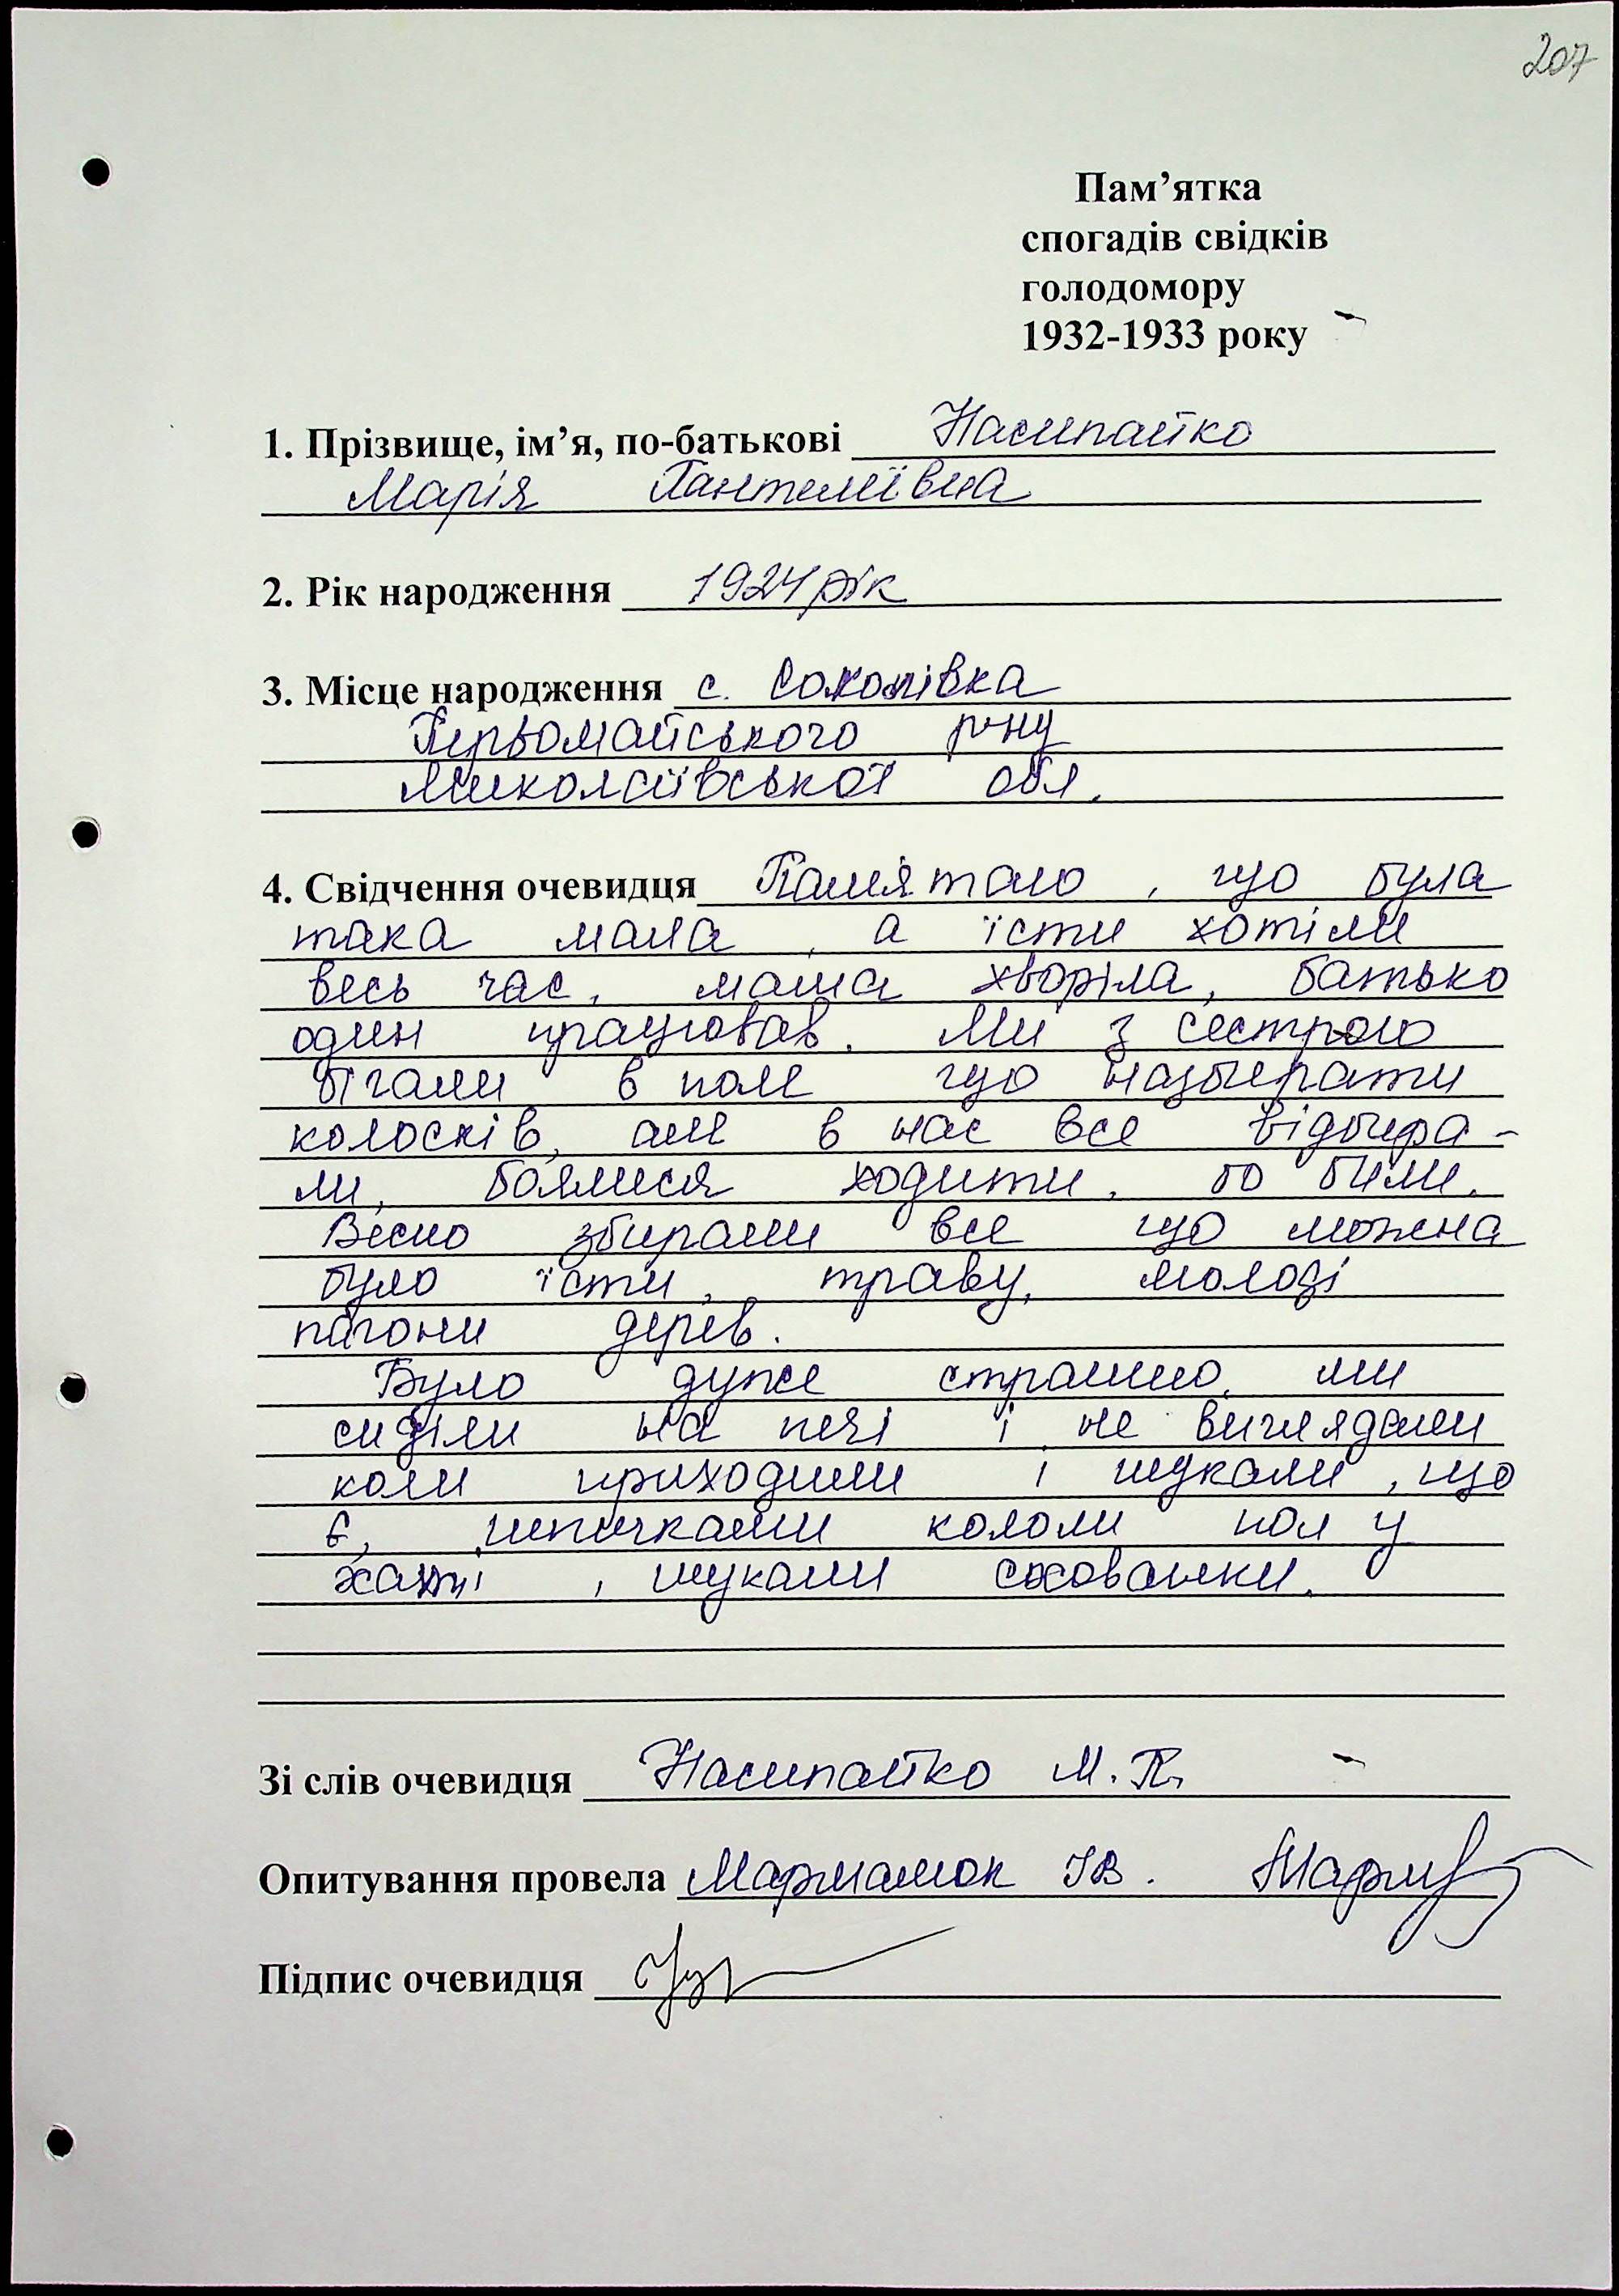 207
Пам’ятка
спогадів свідків
голодомору
1932-1933 року
1. Прізвище, ім’я, по-батькові Насипайко
Марія Пантеліївна
2. Рік народження 1924 рік
3. Місце народження с. Соколівка
Первомайського р-ну
Миколаївської обл.
4. Свідчення очевидця Памятаю, що була
така мала, а їсти хотіли
весь час, мама хворіла, батько
один працював. Ми з сестрою
бігали в поле що назбирати
колосків, але в нас все відбира-
ли, боялися ходити, бо били.
Весно збирали все що можна
було їсти, траву, молоді
пагони дерев.
Було дуже страшно, ми
сиділи на печі і не виглядали
коли приходили і шукали, що
є, шпичками кололи пол у
хаті, шукали сховашки.
Зі слів очевидця Насипайко М. П.
Опитування провела Мармалюк ІВ.
Підпис очевидця